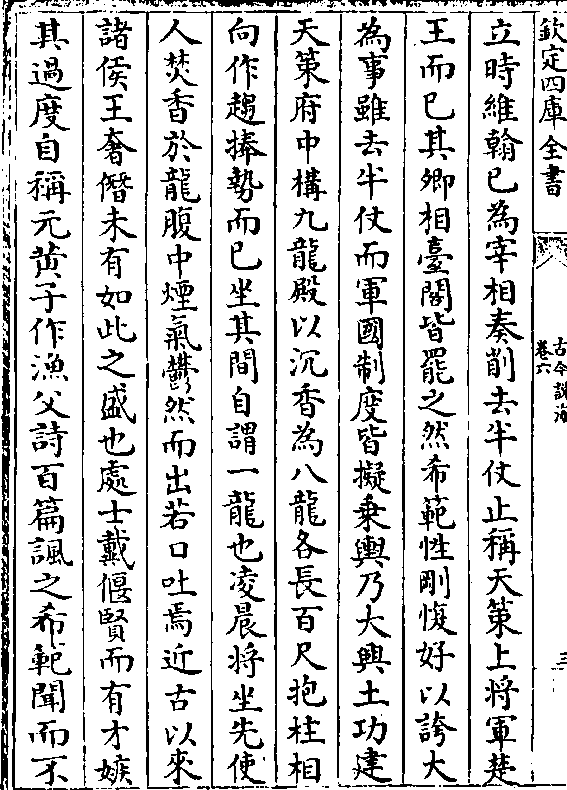 欽定四庫全書
古今說海
卷六
三
立時維翰已為宰相奏削去半仗止稱天策上將軍楚
王而已其卿相臺閣皆罷之然希範性剛愎好以誇大
為事雖去半仗而軍國制度皆擬乗輿乃大興土功建
天策府中構九龍殿以沉香為八龍各長百尺抱柱相
向作趨捧勢而已坐其間自謂一龍也凌晨將坐先使
人焚香於龍腹中煙氣鬱然而出若口吐焉近古以來
諸侯王奢僭未有如此之盛也處士戴偃賢而有才嫉
其過度自稱元黄子作漁父詩百篇諷之希範聞而不